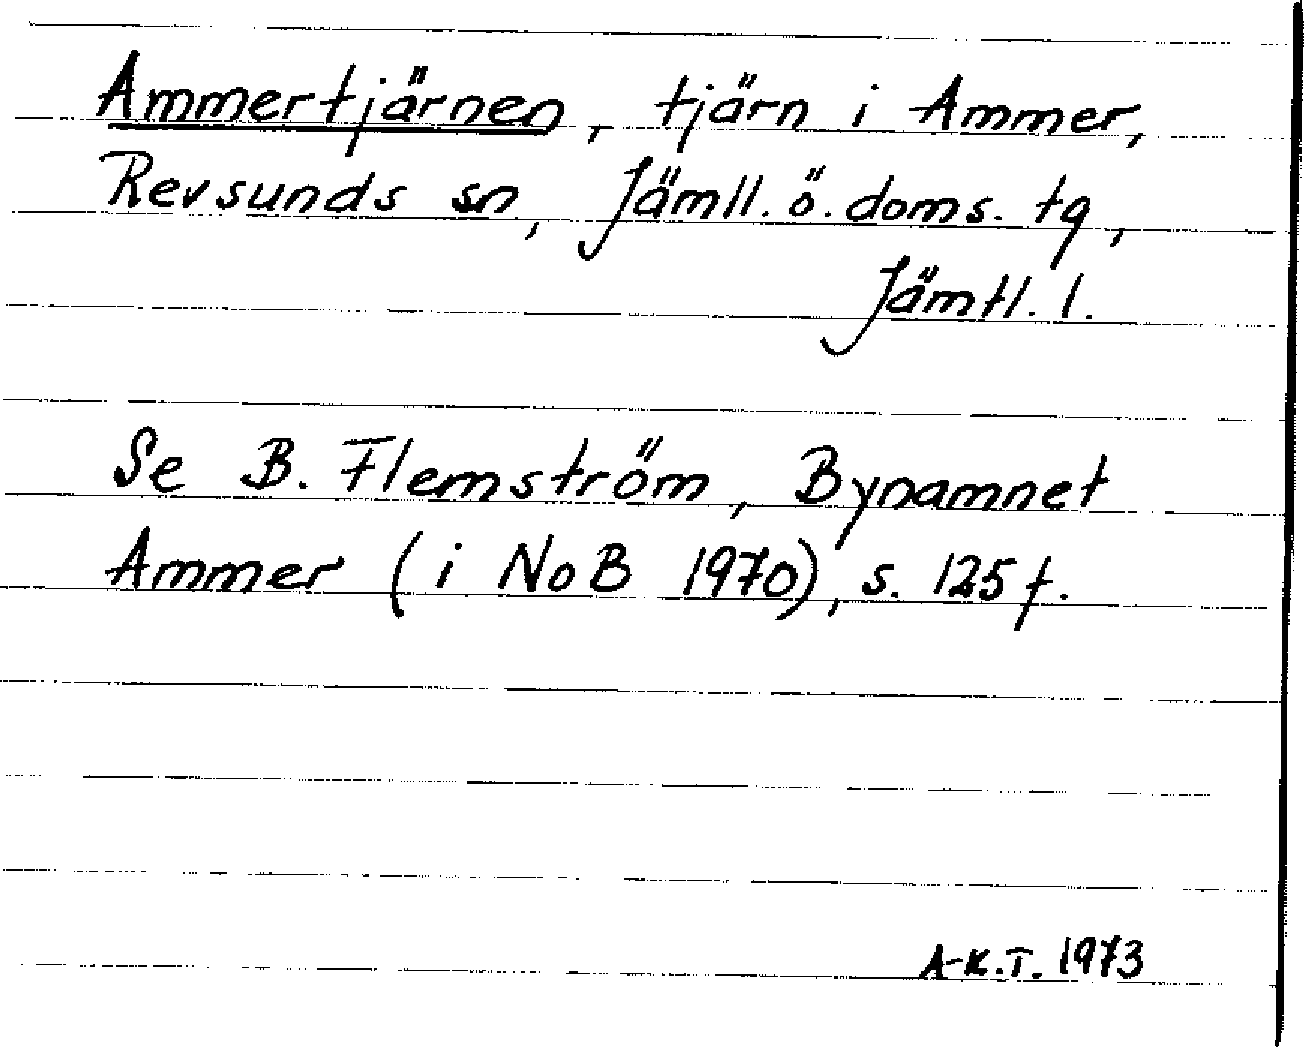 Ammertjärnen, tjärn i Ammer,
Revsunds sn, Jämtl. ö. doms. tg,
Jämtl. l.
Se B. Flemström, Bynamnet
Ammer (i NoB 1970), s. 125 f.
A-K.T. 1973